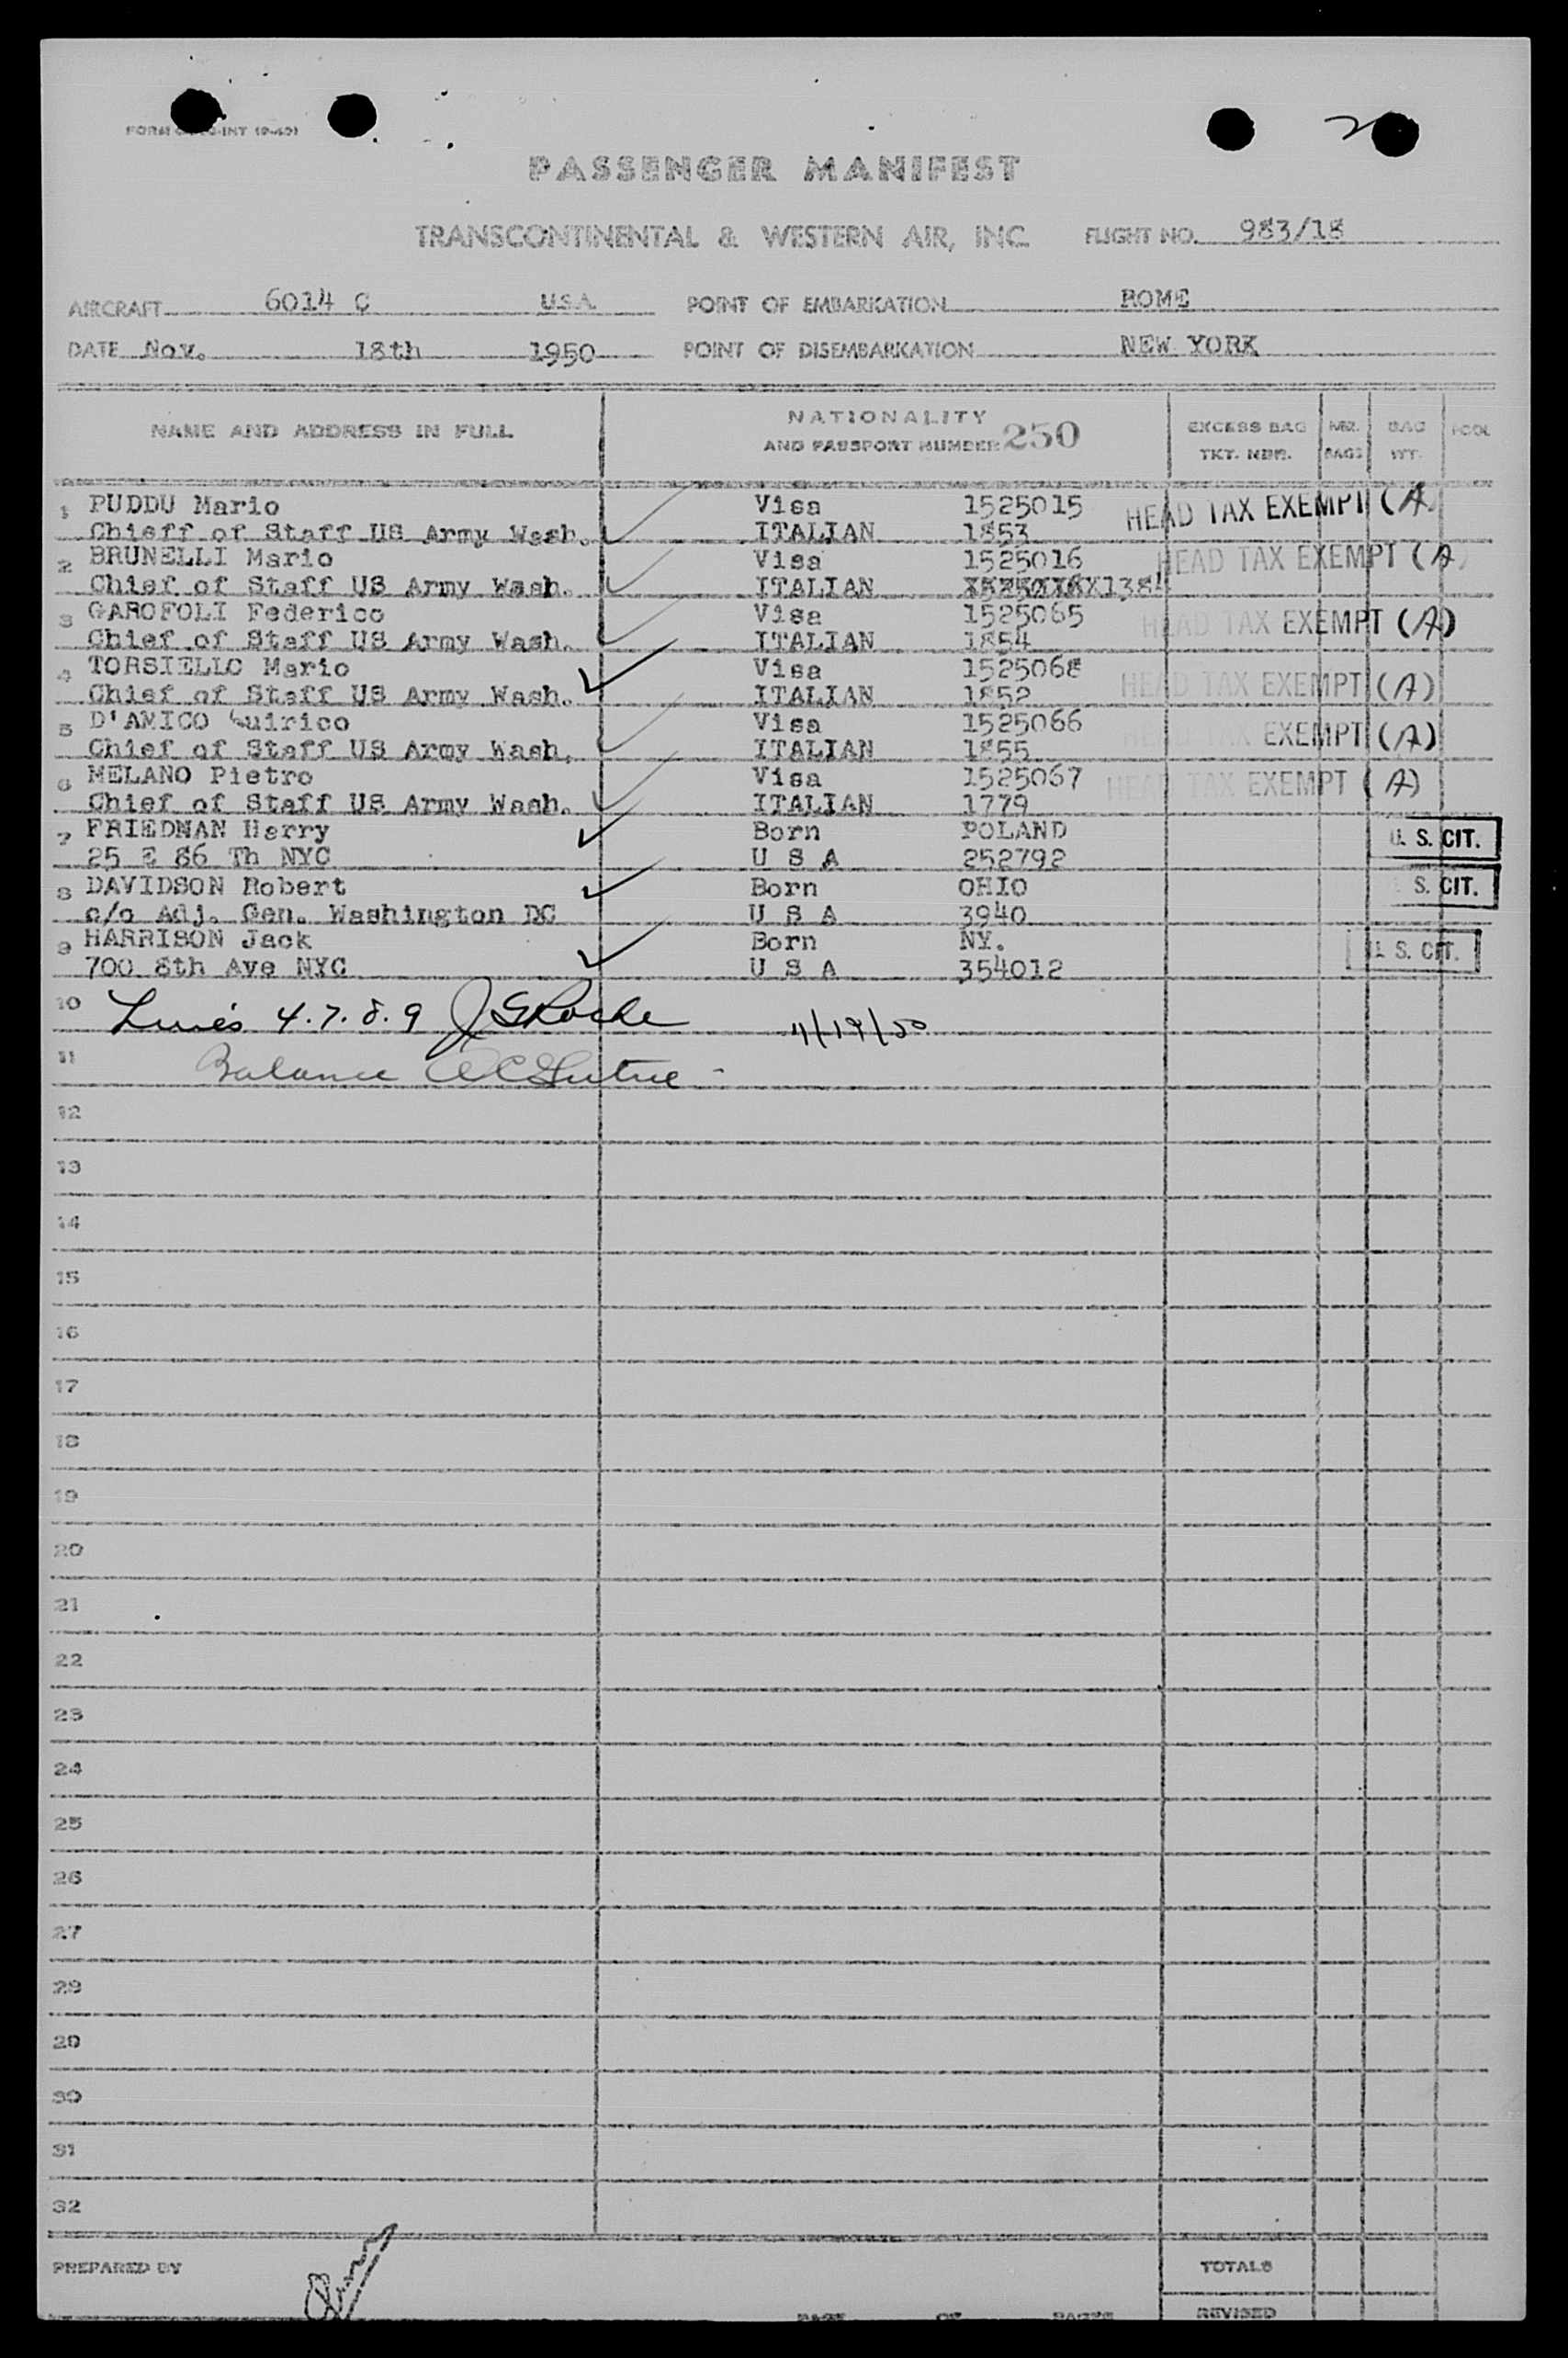 2
PASSENGER MANIFEST
TRANSCONTINENTAL & WESTERN AIR, INC. FLIGHT NO. 983/18
AIRCRAFT 6014 C U.S.A. POINT OF EMBARKATION ROME
DATE Nov. 18th 1950 POINT OF DISEMBARKATION NEW YORK
NAME AND ADDRESS IN FULL NATIONALITY AND PASSPORT NUMBER 250 EXCESS BAG TKT. NBR. NBR. BAGS BAG WT. POOL
1 PUDDU Mario Visa 1525015 HEAD TAX EXEMPT (A)
Chieff of Staff US Army Wash. ITALIAN 1853
2 BRUNELLI Mario Visa 1525016 HEAD TAX EXEMPT (A)
Chief of Staff US Army Wash. ITALIAN
3 GAROFOLI Federico Visa 1525065 HEAD TAX EXEMPT (A)
Chief of Staff US Army Wash. ITALIAN 1854
4 TORSIELLO Mario Visa 1525068 HEAD TAX EXEMPT (A)
Chief of Staff US Army Wash. ITALIAN 1852
5 D'AMICO Quirico Visa 1525066 HEAD TAX EXEMPT (A)
Chief of Staff US Army Wash. ITALIAN 1855
6 MELANO Pietro Visa 1525067 HEAD TAX EXEMPT (A)
Chief of Staff US Army Wash. ITALIAN 1779
7 FRIEDMAN Herry Born POLAND U. S. CIT.
25 E 86 Th NYC U S A 252792
8 DAVIDSON Robert Born OHIO U. S. CIT.
c/o Adj. Gen. Washington DC U S A 3940
9 HARRISON Jack Born NY. U. S. CIT.
700 8th Ave NYC U S A 354012
10 Lines 4.7.8.9 J G Roche 11/19/50
11 Balance
12
13
14
15
16
17
18
19
20
21
22
23
24
25
26
27
28
29
30
31
32
PREPARED BY TOTALS
PAGE OF PAGES REVISED